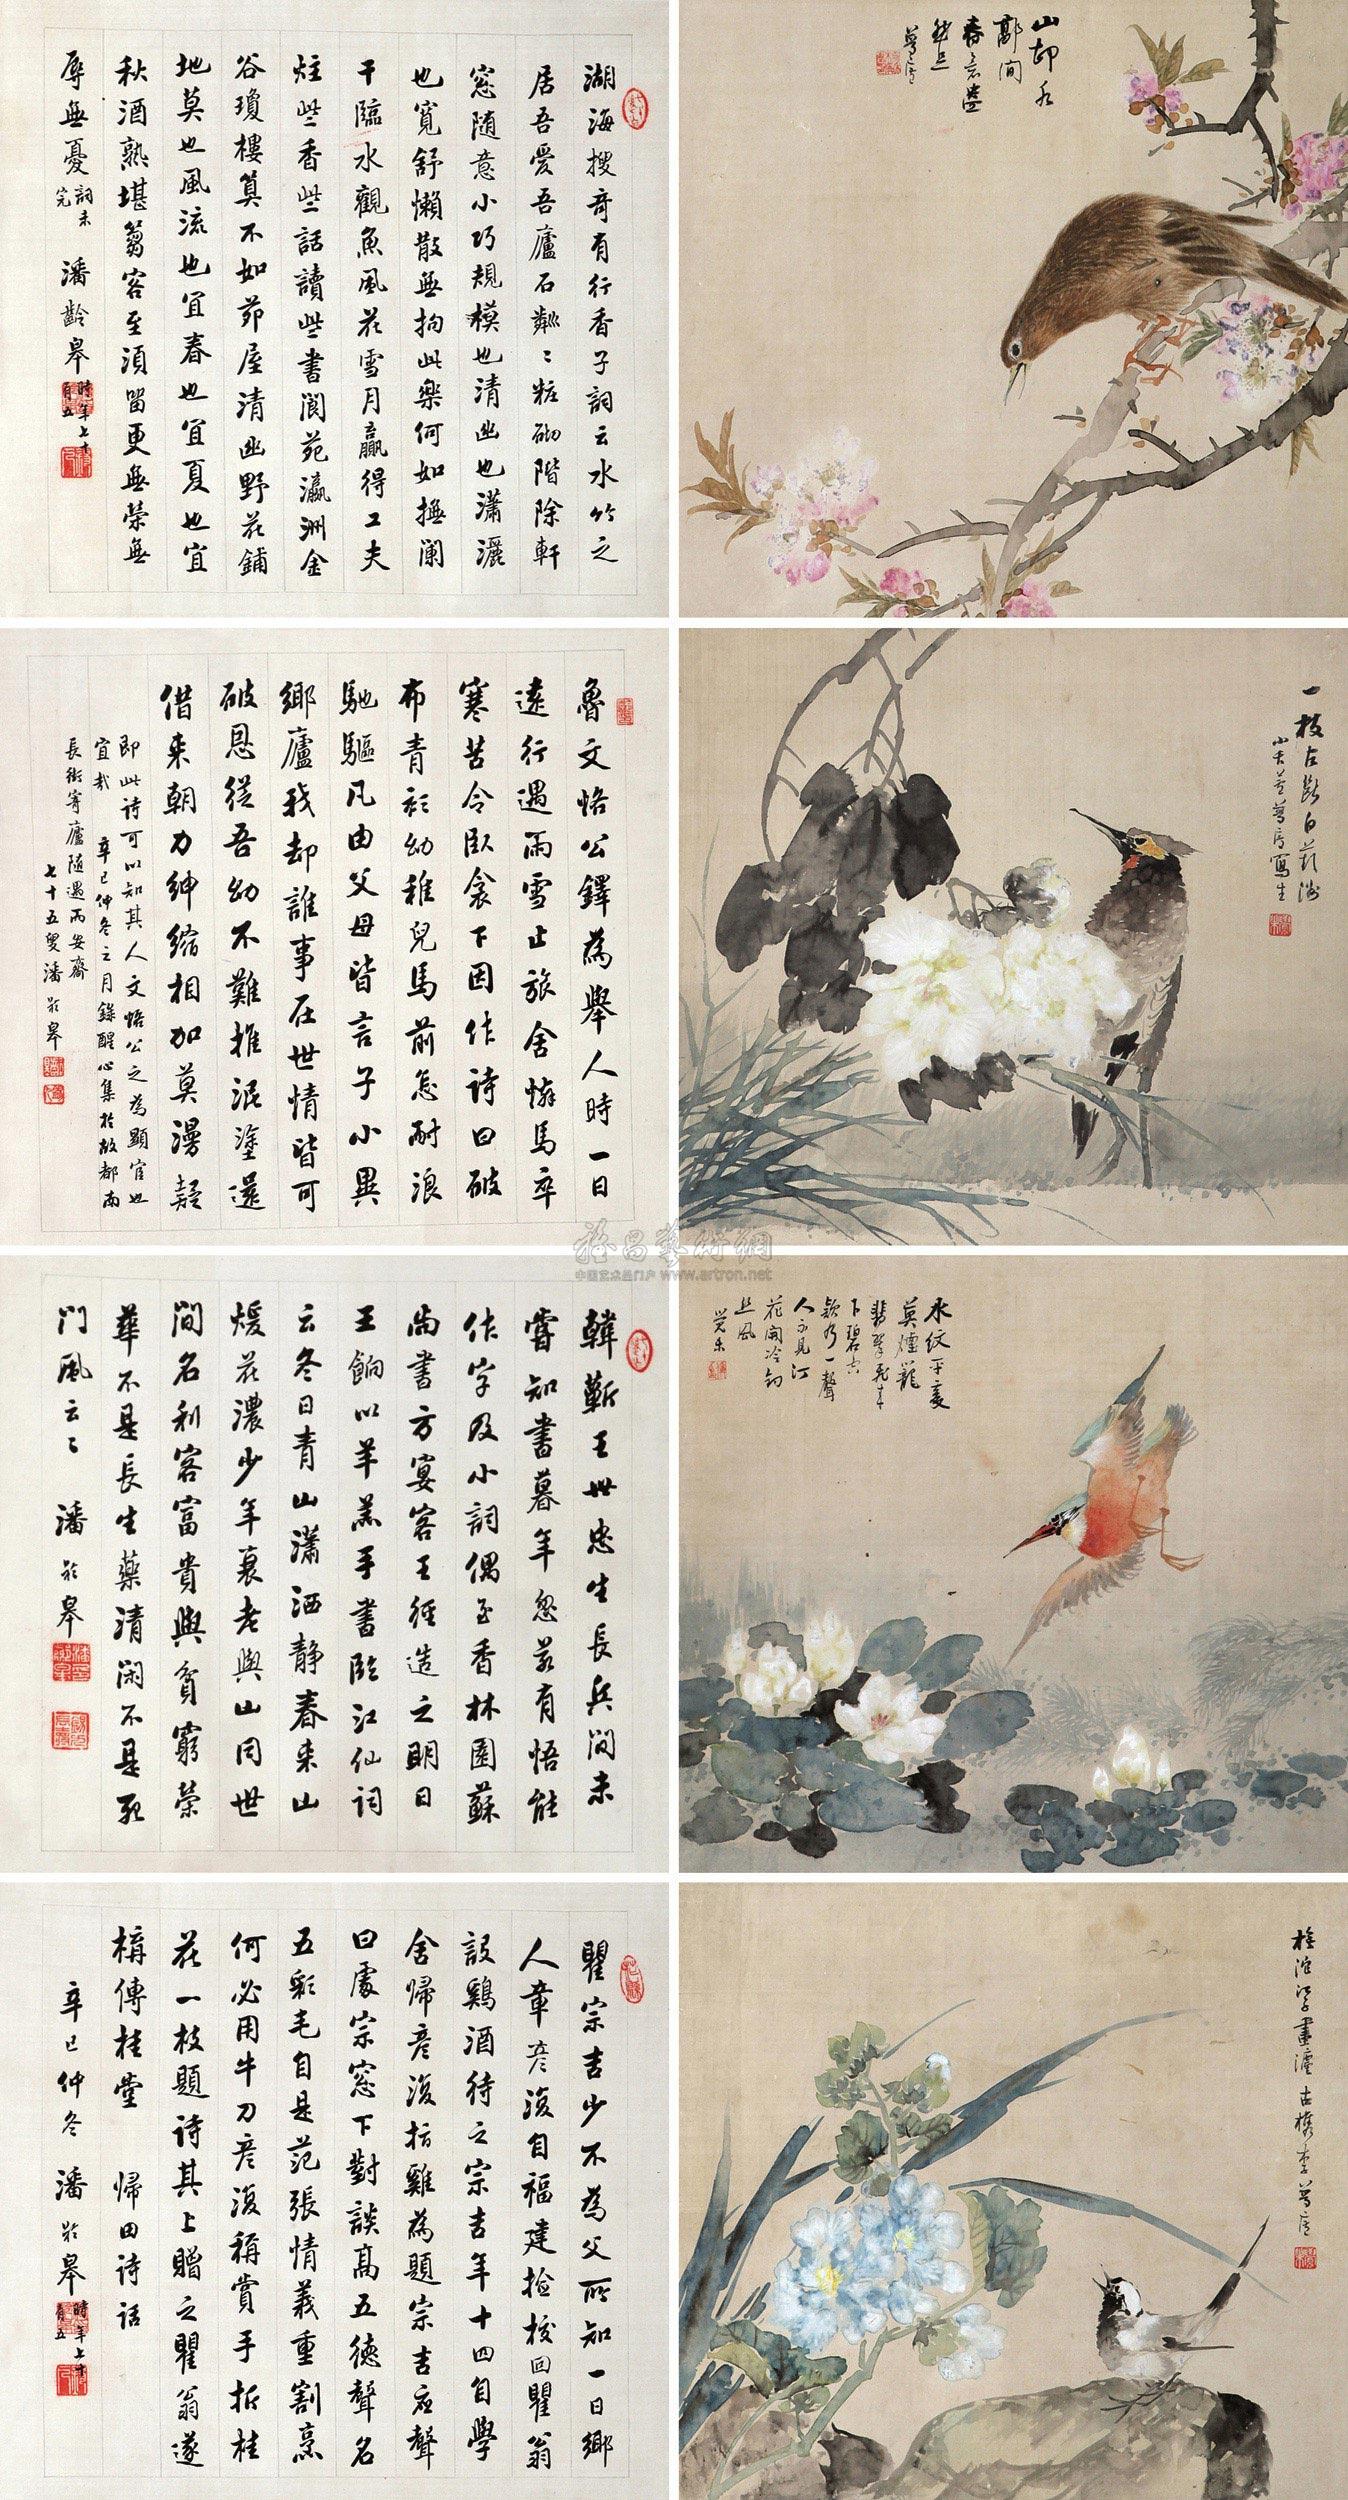 湖海搜奇有行香子詞云水竹之
居吾愛吾廬石粼〻粧砌階除軒
窓随意小巧規模也清幽也瀟灑
也寬舒懶散無拘此樂何如撫闌
干臨水觀魚風花雪月贏得工夫
炷些香些話讀些書閬苑瀛洲金
谷瓊樓算不如茆屋清幽野花鋪
地莫也風流也宜春也宜夏也宜
秋酒熟堪篘客至須留更無榮無
辱無憂 詞未完 潘齡皋 時年七十有五
山邨
鄰間
春
夢廬
魯文恪公鐸為舉人時一日
遠行遇雨雪止旅舍憐馬卒
寒苦令卧衾下因作詩曰破
布青衫幼稚兒馬前怎耐浪
馳驅凡由父母皆言子小異
鄉廬我却誰事在世情皆可
破恩從吾幼不難推泥塗還
借来朝力紳縮相加莫漫疑
即此詩可以知其人文恪公之為顯官也
宜哉 辛巳仲冬之月錄醒心集於故都南
長街寄廬随遇而安齋
七十五叟潘齡皋
一枝占斷白蘋洲
夢廬寫生
韓蘄王世忠生長兵間未
嘗知書暮年忽若有悟能
作字及小詞偶至香林園蘇
尚書方宴客王徑造之明日
王餉以羊羔手書臨江仙詞
云冬日青山瀟洒静春来山
煖花濃少年衰老與山同世
間名利客富貴與貧窮榮
華不是長生藥清閑不是死
門風云〻 潘齡皋
水紋平
莫
翡翠飛来
下碧
一聲
人不見汀
花開冷
風
瞿宗吉少不為父所知一日鄉
人章彦復自福建檢校回瞿翁
設鷄酒待之宗吉年十四自學
舍歸彦復指雞為題宗吉應聲
曰處宗窓下對談高五德聲名
五彩毛自是范張情義重割烹
何必用牛刀彦復稱賞手折桂
花一枝題詩其上贈之瞿翁遂
構傳桂堂 歸田詩話
辛巳仲冬 潘齡皋 時年七十有五
古樵李夢廬
雅昌藝術網
中国艺术品门户 www.artron.net